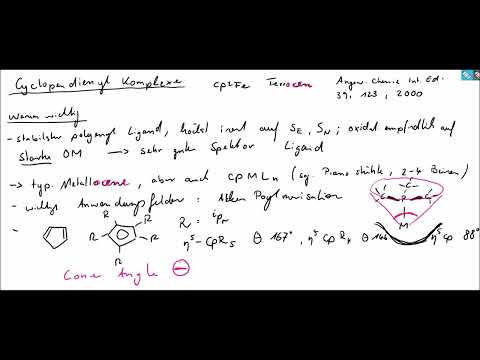 Cyclopendienyl Komplexe Cp2Fe Ferrocen Angew. Chemie Int. Ed.
39, 123, 2000
Warum wichtig
- stabilster polyenyl Ligand, höchst inert auf SE, SN; oxidat empfindlich auf
starke OM → sehr gute Spektor Ligand
→ typ. Metallocene, aber auch CpMLn (sg. Piano stühle, 2-4 Beinen)
- wichtige Anwendungsfelder: Alken Polymerisation
- R R R R R R = iPr C C C R M
η5-CpR5 Θ 167°, η5 CpR4 Θ 146 η5 Cp 88°
Cone Angle Θ